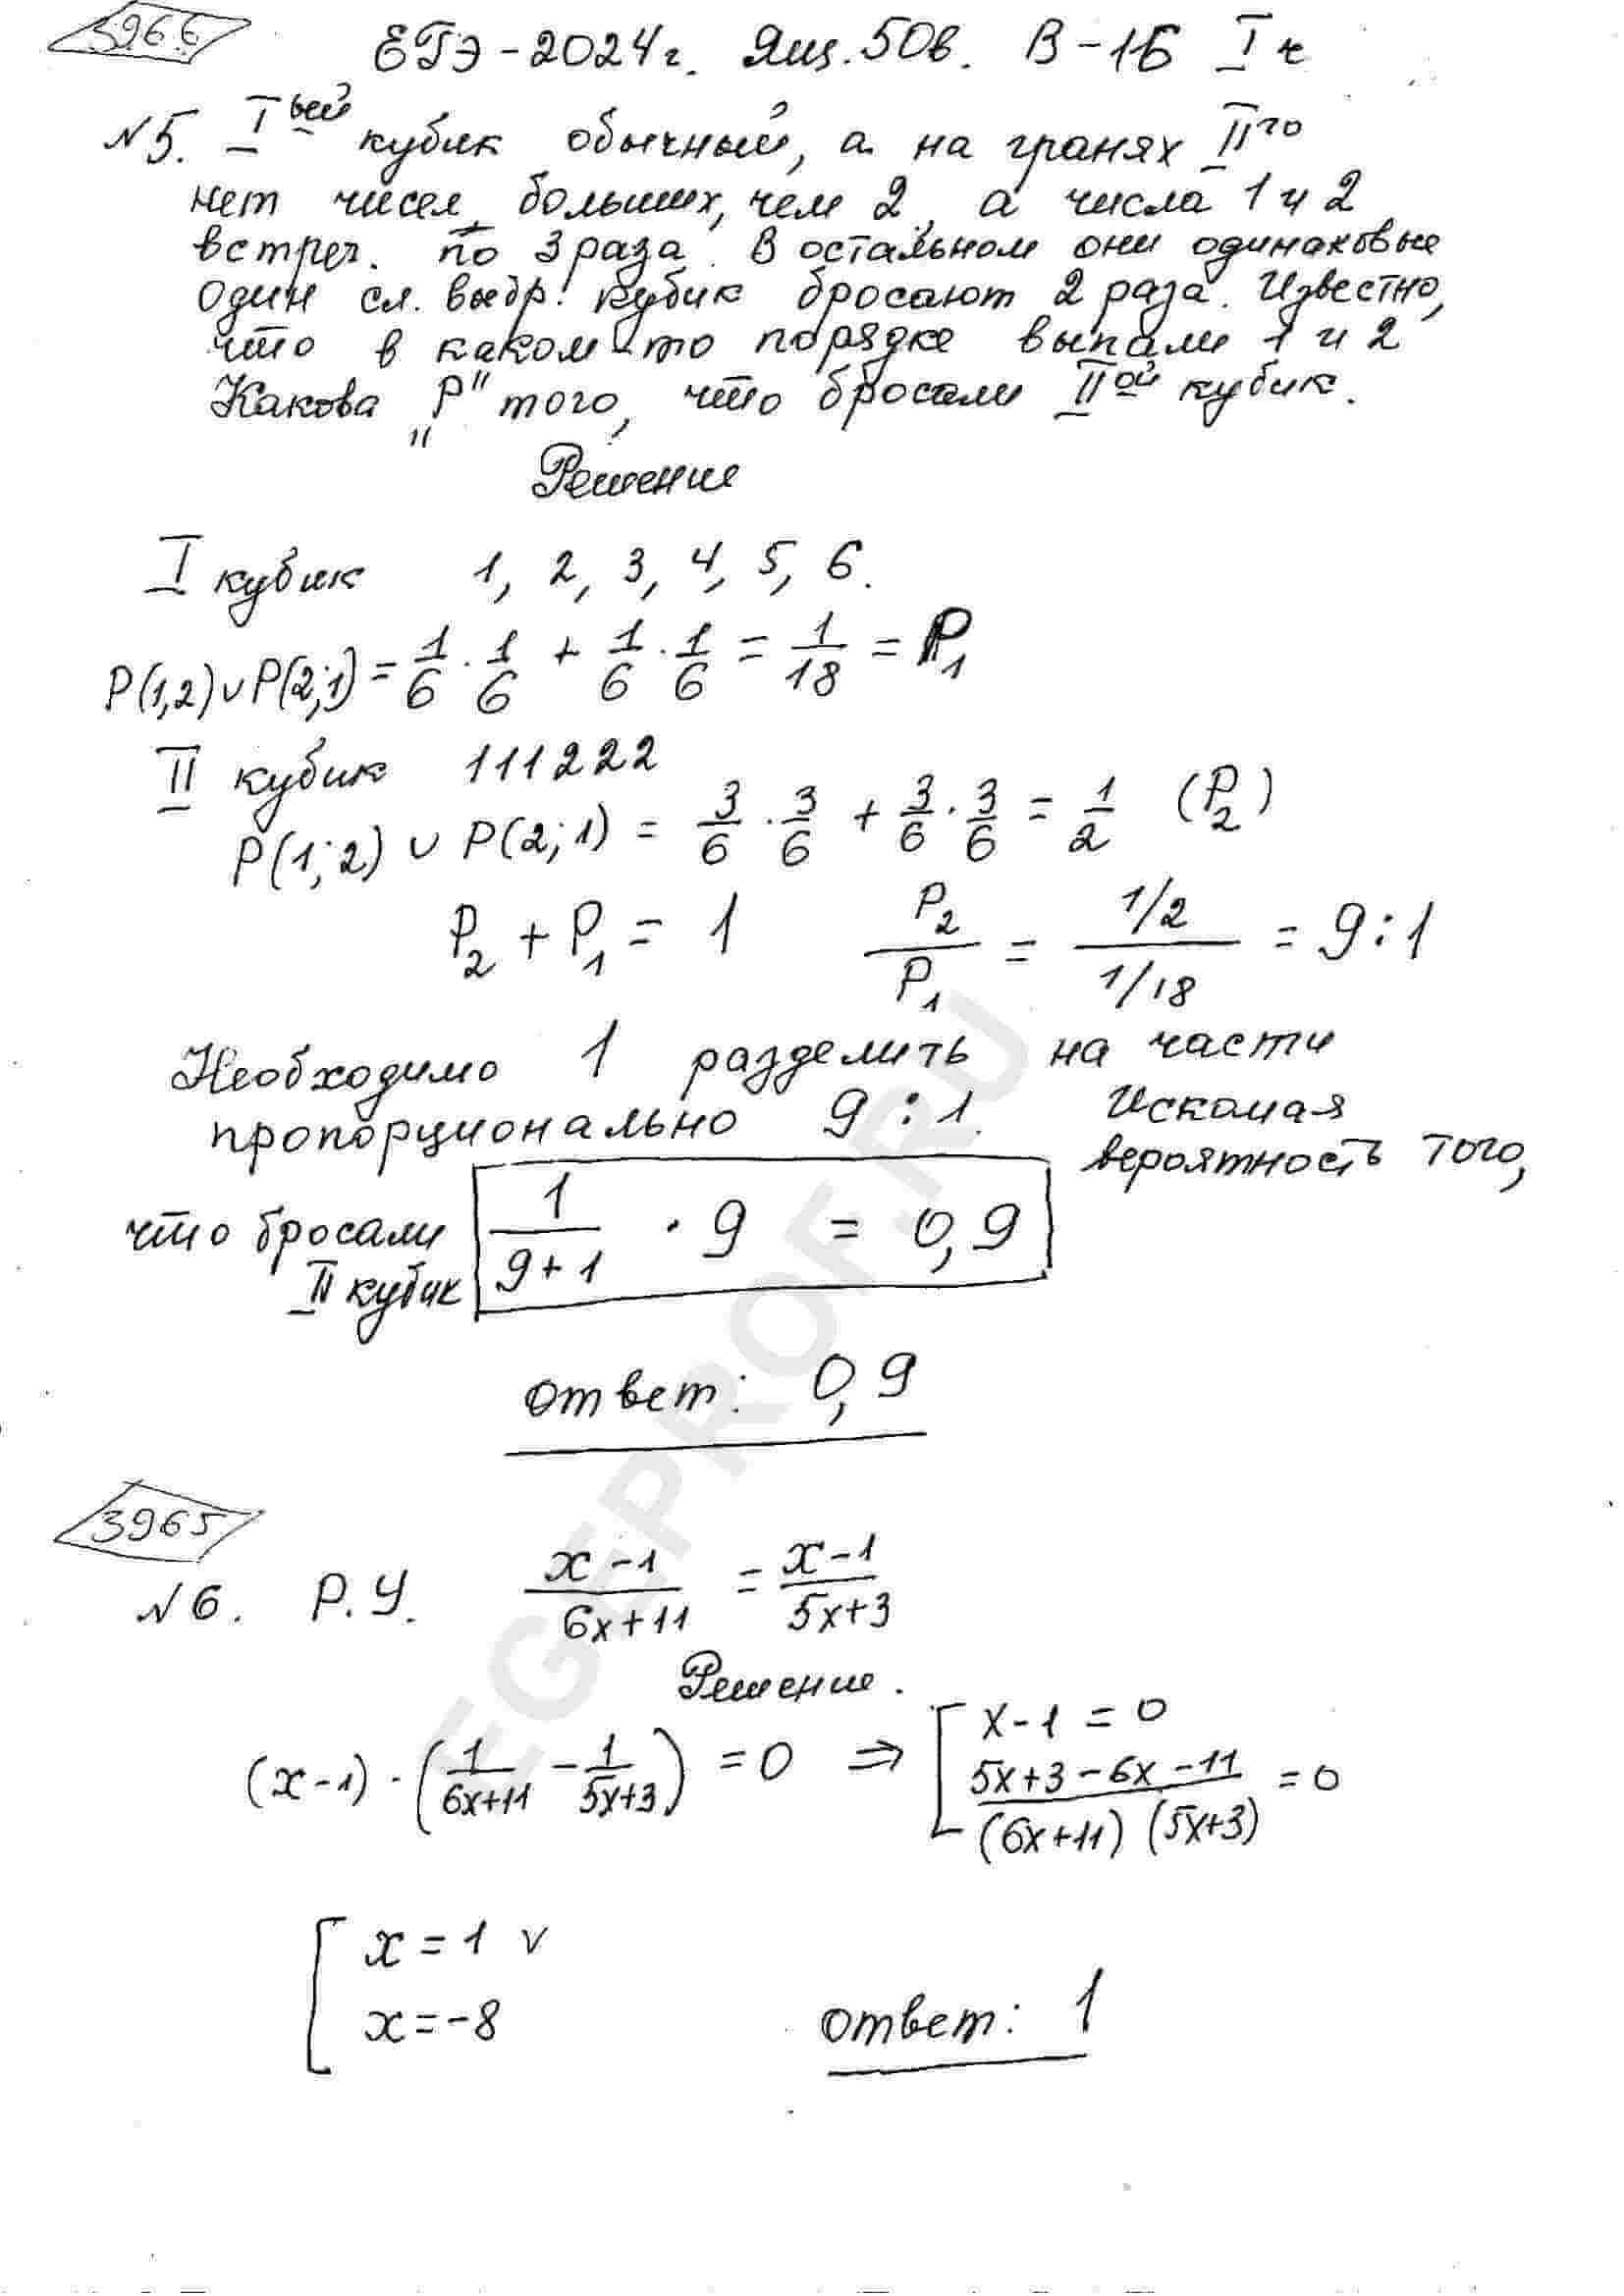 3966
ЕГЭ-2024г. Ящ. 50в. В-16 I ч
№5. Iый кубик обычный, а на гранях IIго
нет чисел, больших, чем 2, а числа 1 и 2
встреч. по 3 раза. В остальном они одинаковые
Один сл. выбр. кубик бросают 2 раза. Известно,
что в каком-то порядке выпали 1 и 2
Какова „P" того, что бросали IIой кубик.
Решение
I кубик 1, 2, 3, 4, 5, 6.
P(1,2) ∪ P(2;1) = 1/6 · 1/6 + 1/6 · 1/6 = 1/18 = P₁
II кубик 111222
P(1;2) ∪ P(2;1) = 3/6 · 3/6 + 3/6 · 3/6 = 1/2 (P₂)
P₂ + P₁ = 1 P₂/P₁ = (1/2)/(1/18) = 9:1
Необходимо 1 разделить на части
пропорционально 9:1. Искомая
вероятность того,
что бросали II кубик 1/(9+1) · 9 = 0,9
ответ: 0,9
3965
№6. Р.У. (x-1)/(6x+11) = (x-1)/(5x+3)
Решение.
(x-1) · (1/(6x+11) - 1/(5x+3)) = 0 ⇒ [ x-1 = 0
(5x+3-6x-11)/((6x+11)(5x+3)) = 0
[ x = 1 v
x = -8
ответ: 1
EGEPROF.RU